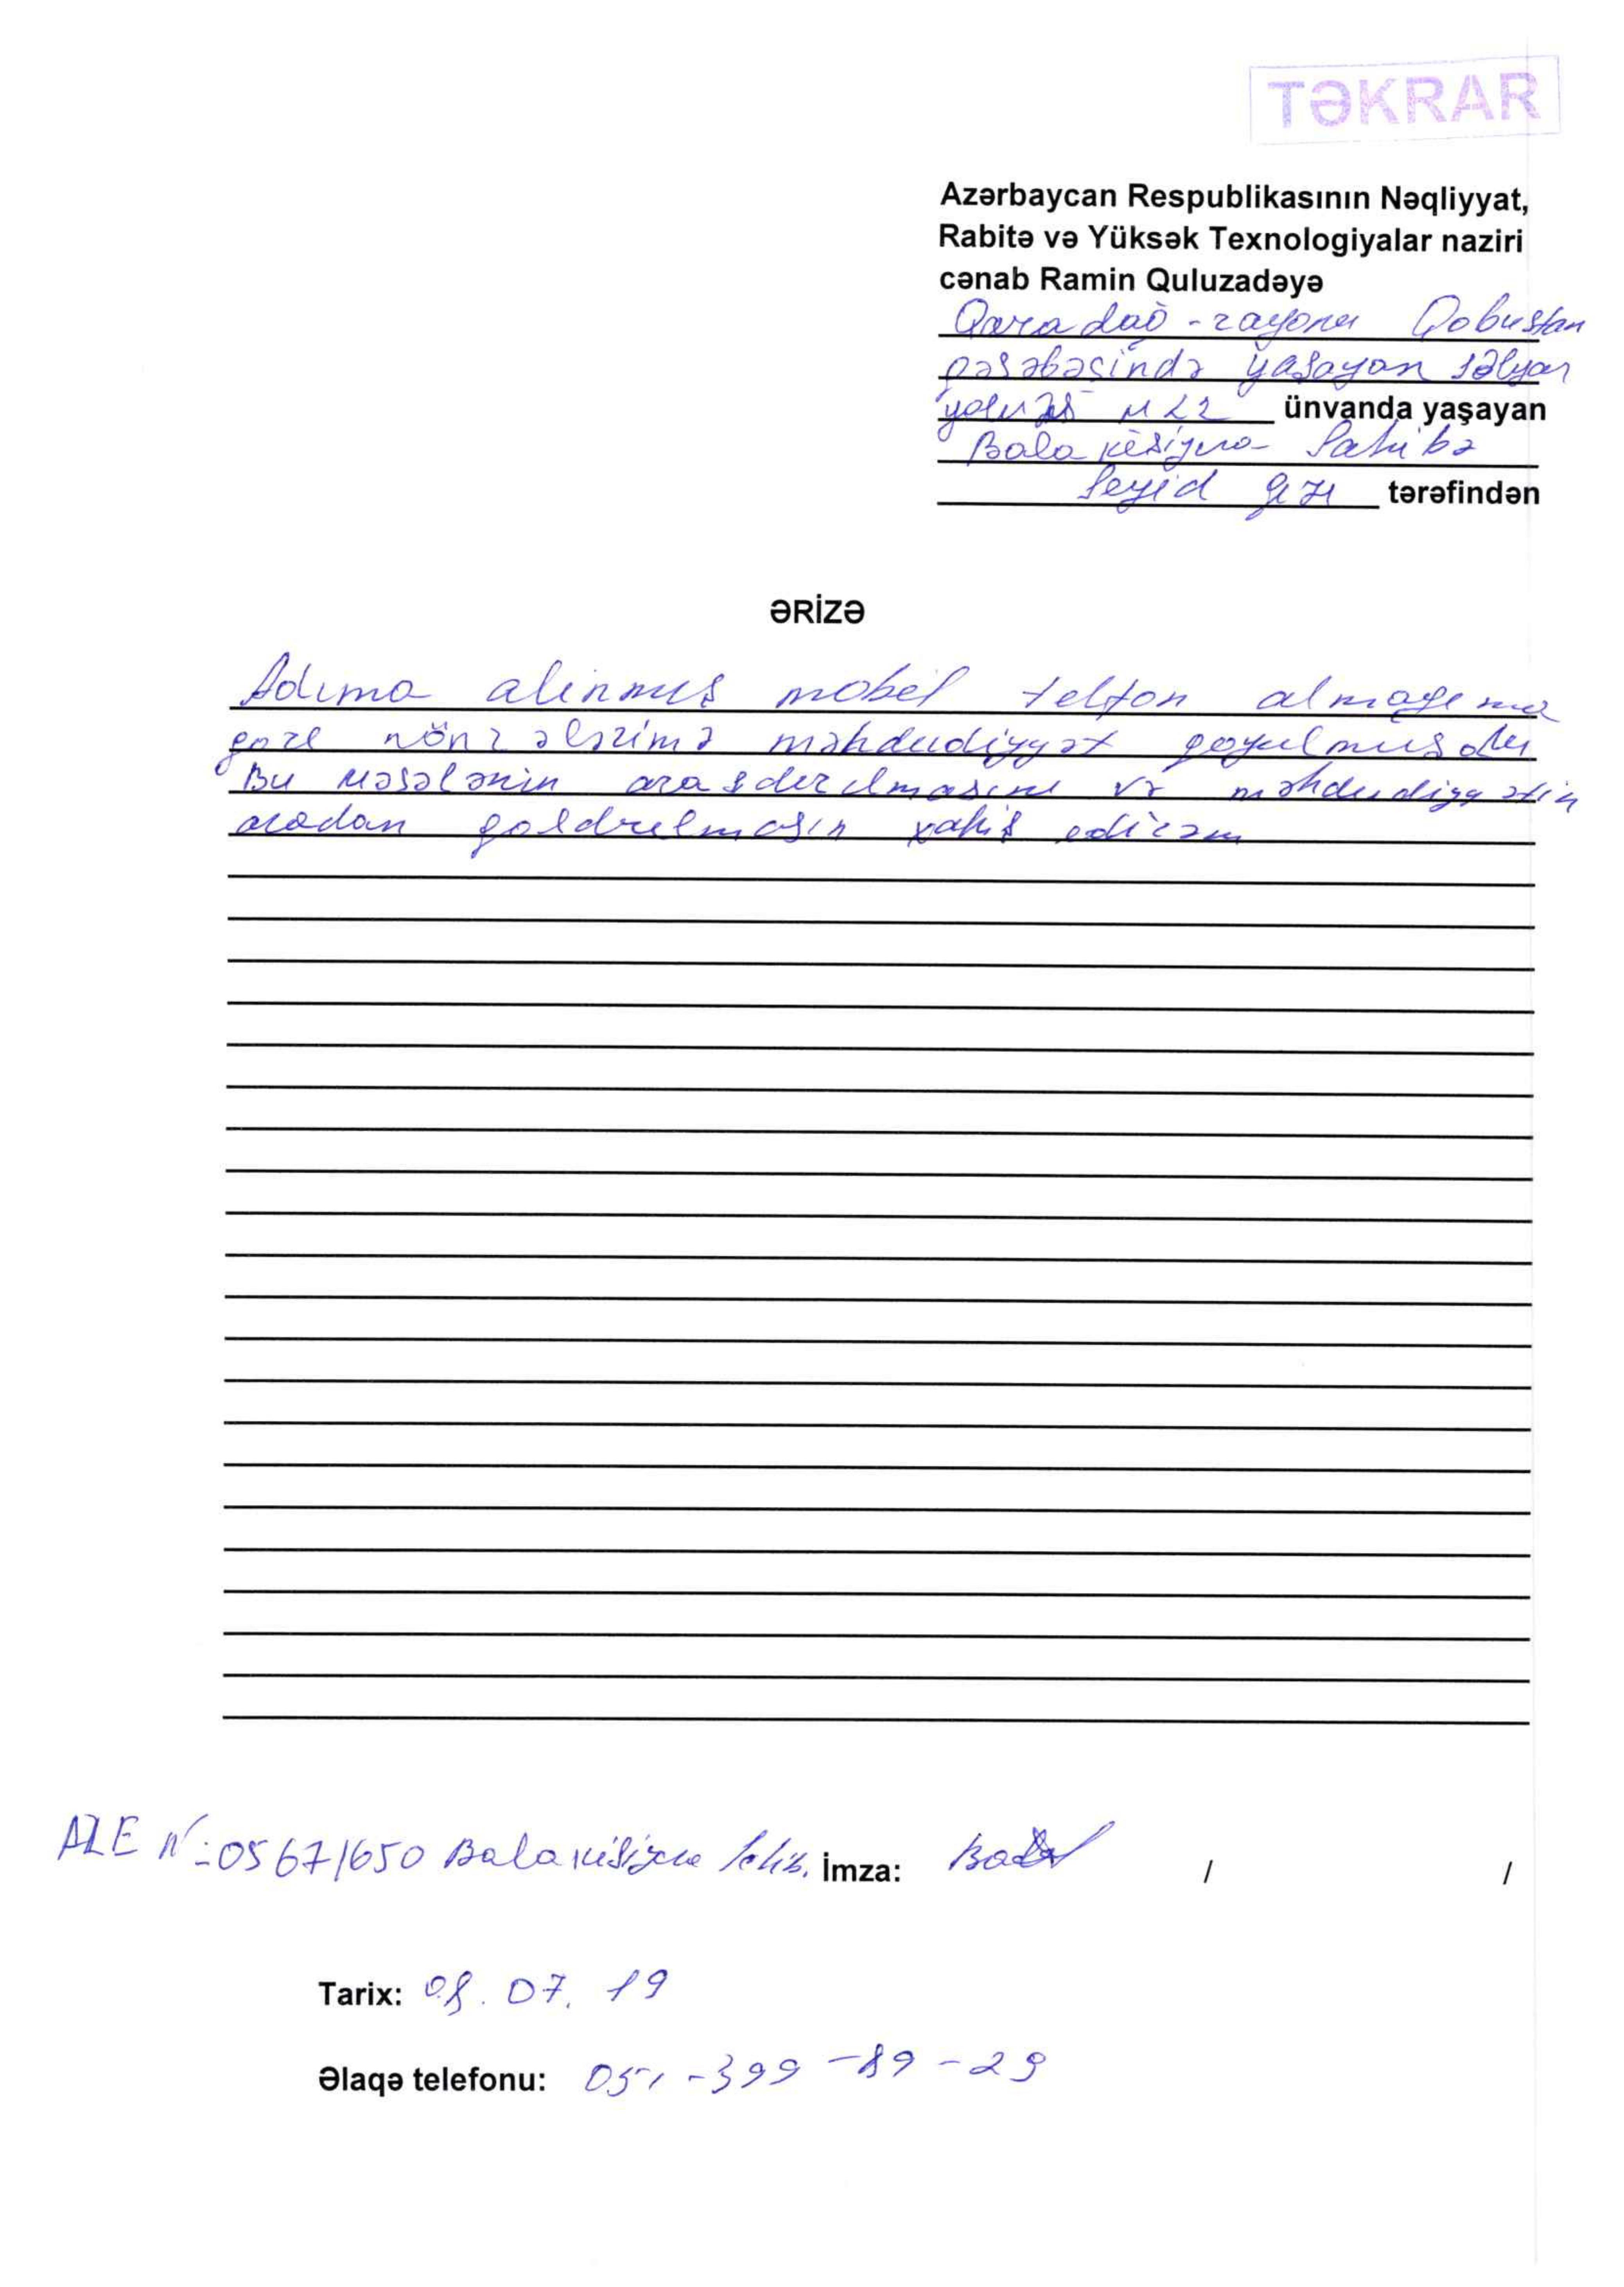 TƏKRAR
Azərbaycan Respublikasının Nəqliyyat,
Rabitə və Yüksək Texnologiyalar naziri
cənab Ramin Quluzadəyə
Qaradağ - rayonu Qobustan
qəsəbəsində yaşayan Səlyan
yolu ünvanda yaşayan
Balakişiyeva Sahibə
Seyid qızı tərəfindən
ƏRİZƏ
Adıma alınmış mobil telfon almağıma
göre nönrələrimə məhdudiyyət qoyulmuşdu
Bu məsələnin araşdırılmasını və məhdudiyyətin
aradan qaldrılmasın xahiş edirəm
AZE №: 05671650 Balakişiyeva Sahib. İmza: / /
Tarix: 08.07.19
Əlaqə telefonu: 051-399-89-29